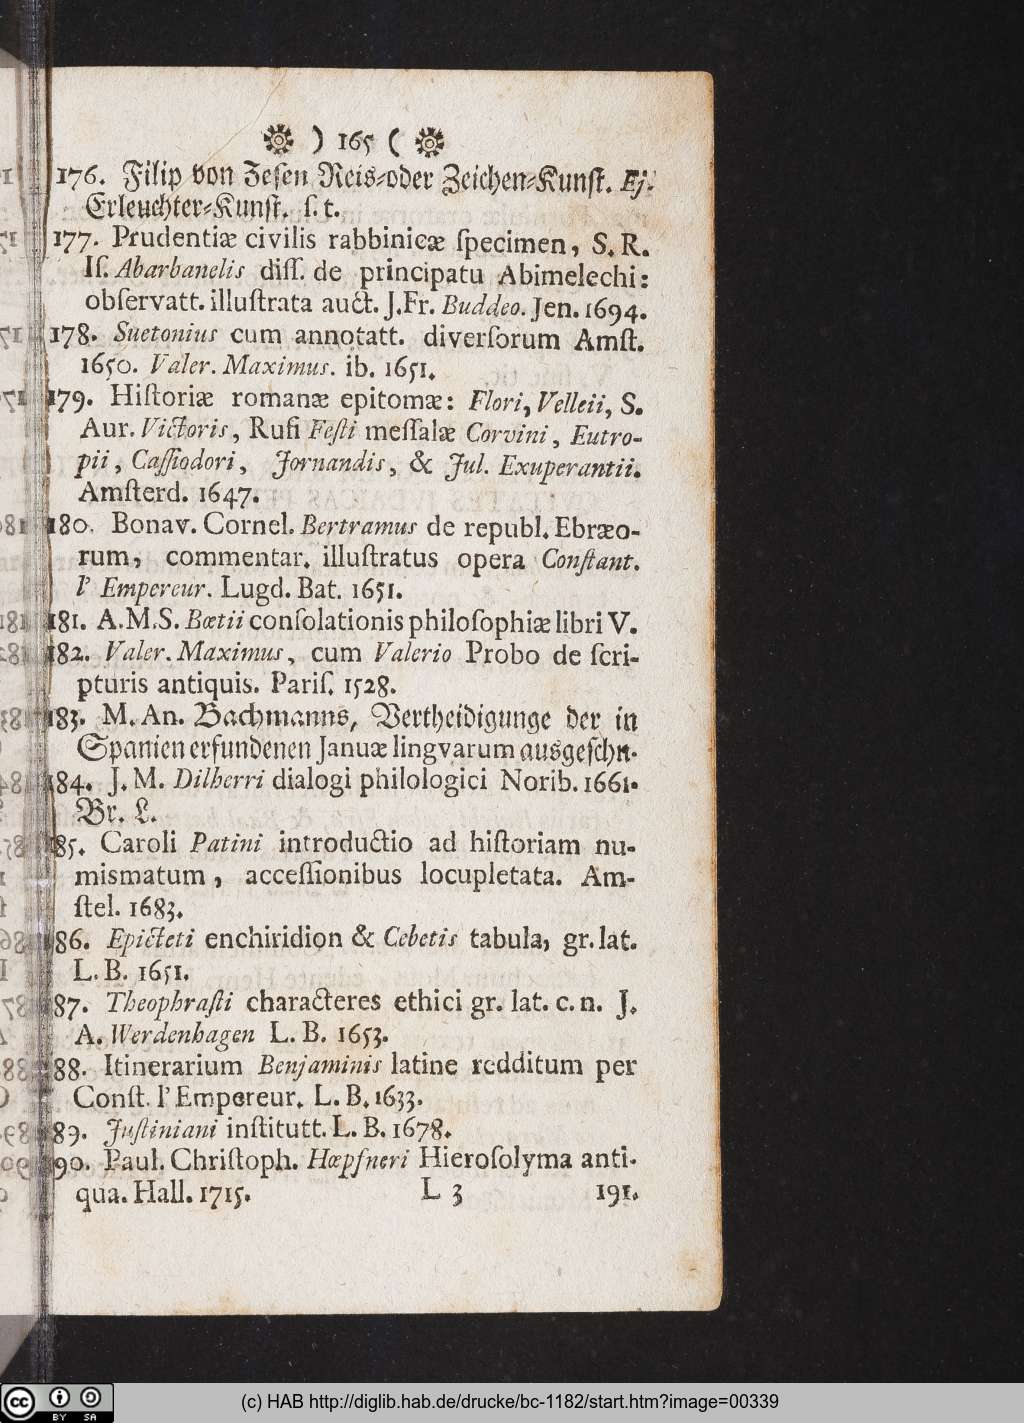 ) 165 (
176. Filip von Zesen Reis-oder Zeichen-Kunſt. Ej.
Erleuchter-Kunſt. ſ. t.
177. Prudentiæ civilis rabbinicæ ſpecimen, S. R.
Iſ. Abarbanelis diſſ. de principatu Abimelechi:
obſervatt. illuſtrata auct. J. Fr. Buddeo. Jen. 1694.
178. Suetonius cum annotatt. diverſorum Amſt.
1650. Valer. Maximus. ib. 1651.
179. Hiſtoriæ romanæ epitomæ: Flori, Velleii, S.
Aur. Victoris, Rufi Feſti meſſalæ Corvini, Eutro-
pii, Caſſiodori, Jornandis, & Jul. Exuperantii.
Amſterd. 1647.
180. Bonav. Cornel. Bertramus de republ. Ebræo-
rum, commentar. illuſtratus opera Conſtant.
l' Empereur. Lugd. Bat. 1651.
181. A. M. S. Bœtii conſolationis philoſophiæ libri V.
182. Valer. Maximus, cum Valerio Probo de ſcri-
pturis antiquis. Pariſ. 1528.
183. M. An. Bachmanns, Vertheidigunge der in
Spanien erfundenen Januæ lingvarum ausgeſchn.
184. J. M. Dilherri dialogi philologici Norib. 1661.
Br. L.
185. Caroli Patini introductio ad hiſtoriam nu-
mismatum, acceſſionibus locupletata. Am-
ſtel. 1683.
186. Epicteti enchiridion & Cebetis tabula, gr. lat.
L. B. 1651.
187. Theophraſti characteres ethici gr. lat. c. n. J.
A. Werdenhagen L. B. 1653.
188. Itinerarium Benjaminis latine redditum per
Conſt. l' Empereur. L. B. 1633.
189. Juſtiniani inſtitutt. L. B. 1678.
190. Paul. Chriſtoph. Hœpfneri Hieroſolyma anti-
qua. Hall. 1715.
L 3
191.
cc BY SA
(c) HAB http://diglib.hab.de/drucke/bc-1182/start.htm?image=00339